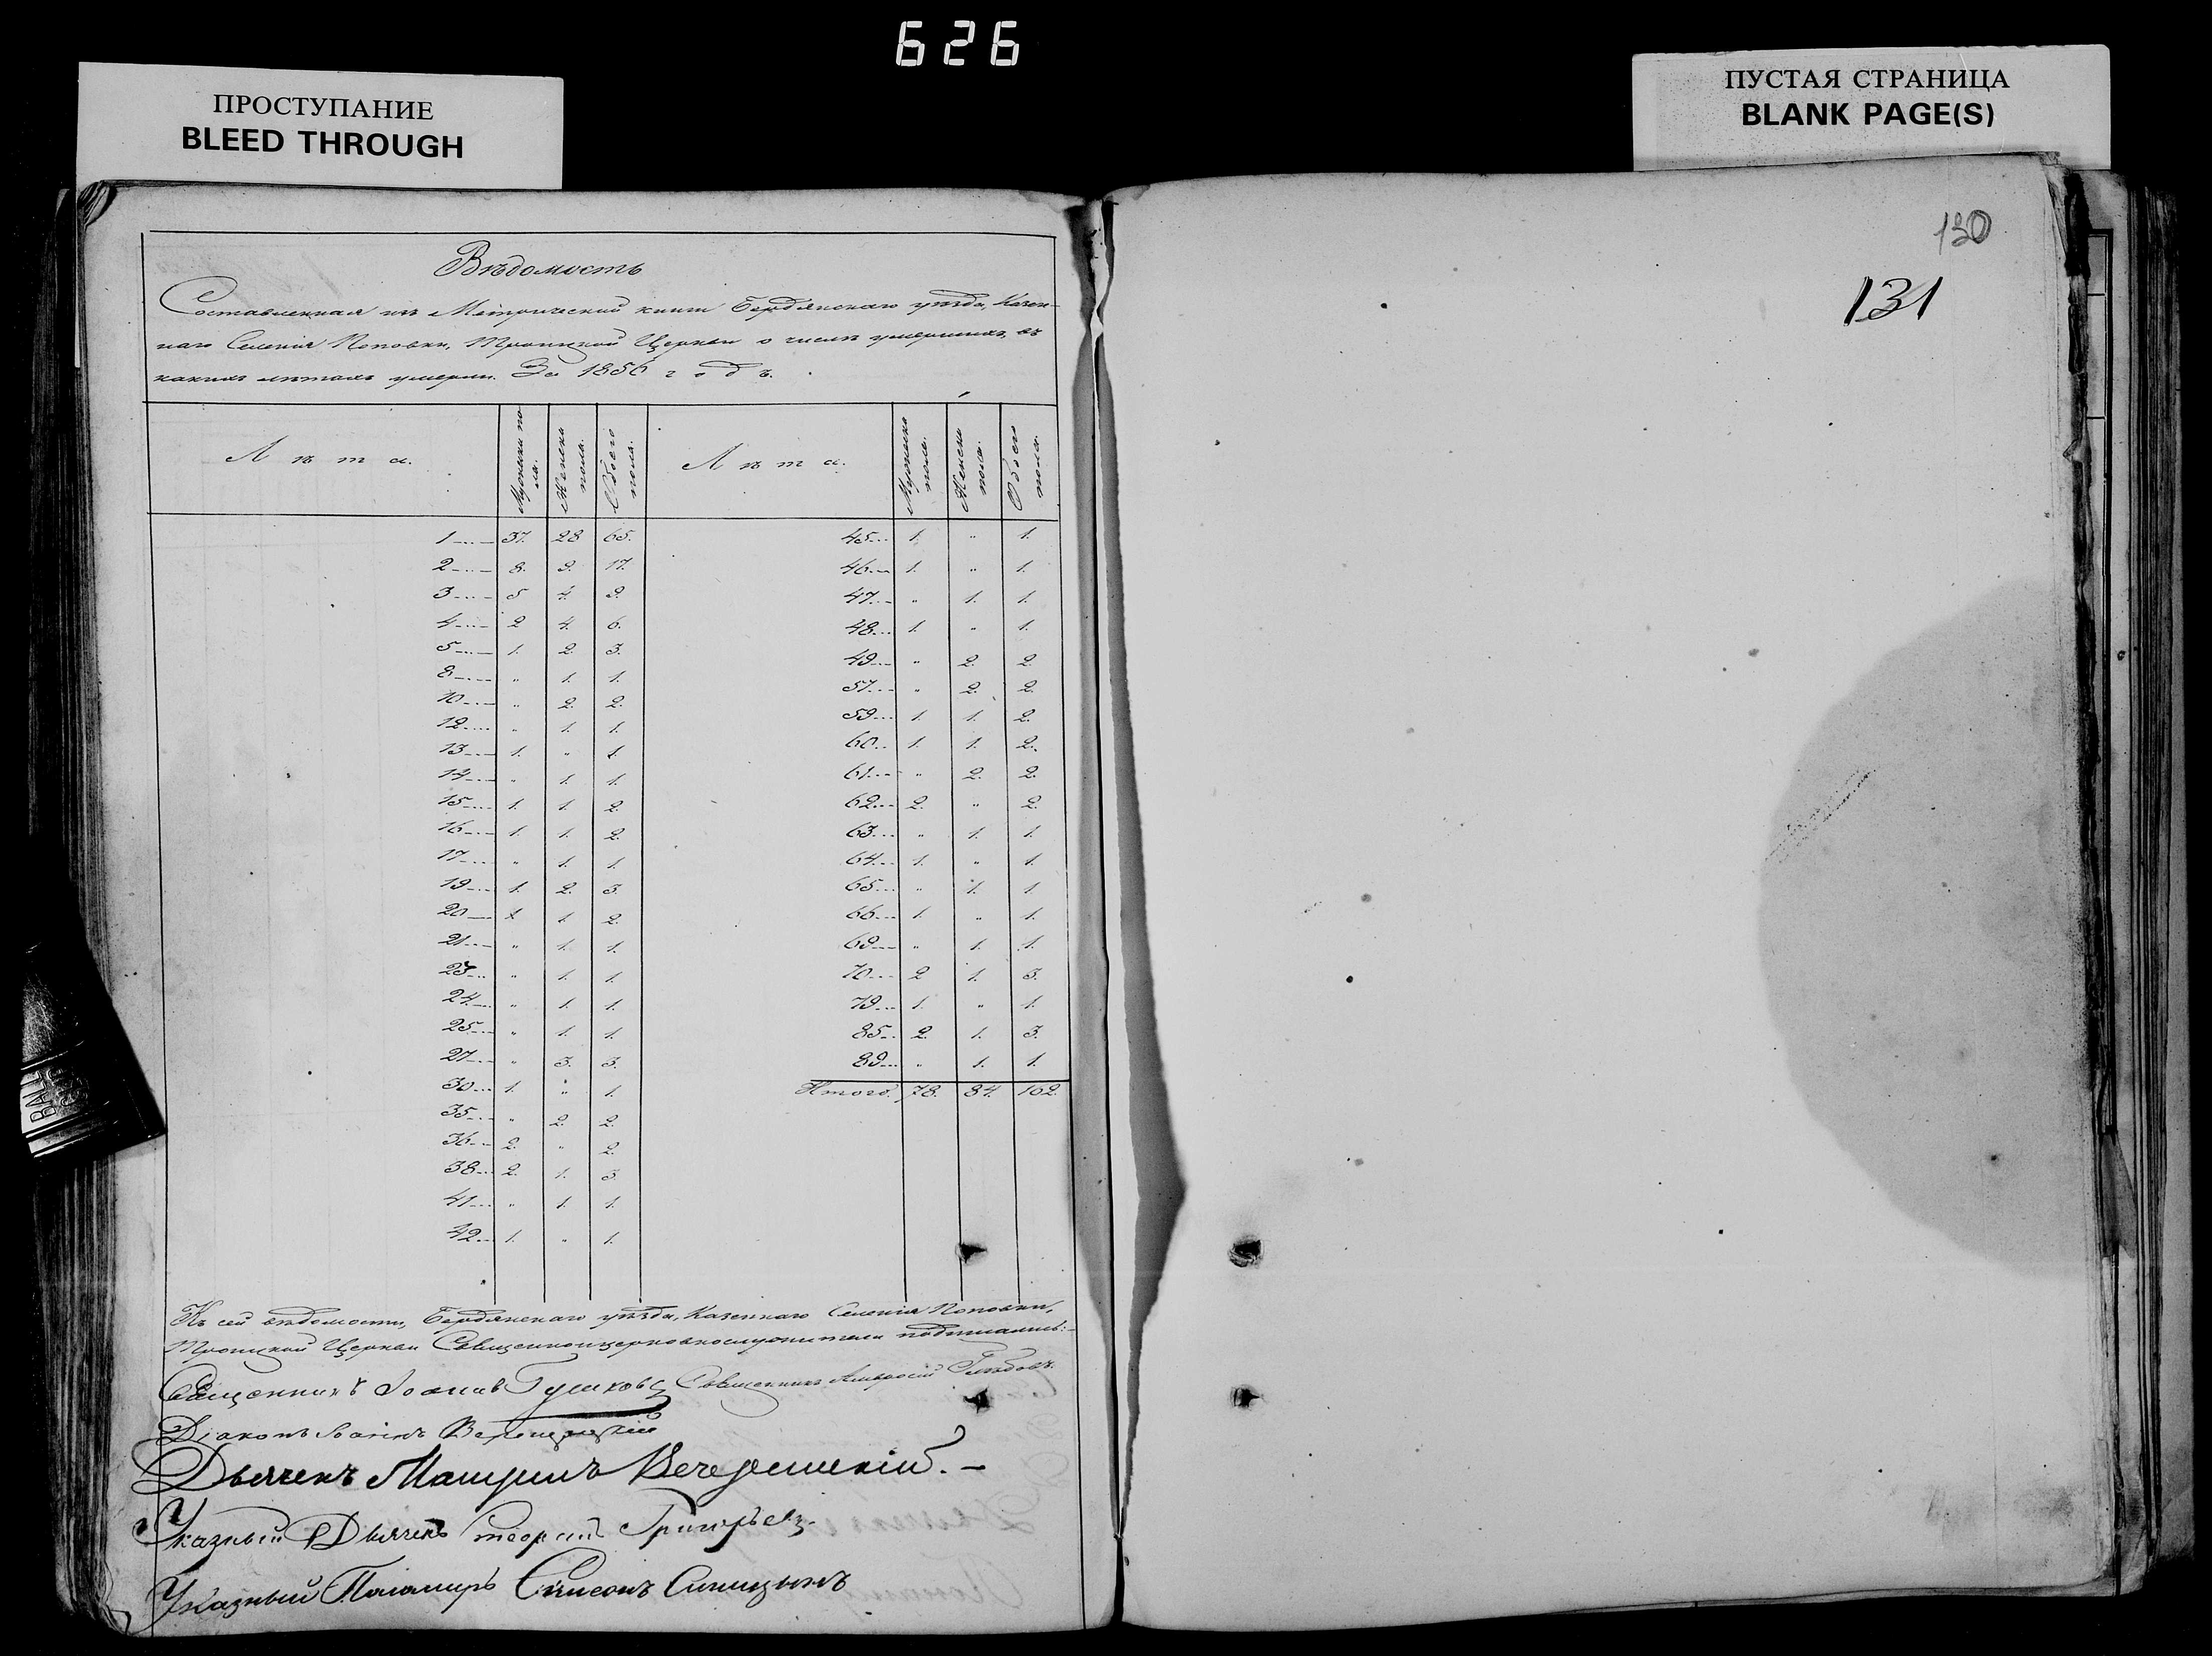 626
ПРОСТУПАНИЕ
BLEED THROUGH
ПУСТАЯ СТРАНИЦА
BLANK PAGE(S)
130
131
Вѣдомость
Составленная изъ Метрической книги Бердянскаго уѣзда, Казен-
наго Селенія Поповки, Троицкой Церкви о числѣ умершихъ, въ
какихъ лѣтахъ умерли. За 1856 годъ.
Лѣта. Мужеска пола. Женска пола. Обоего пола. Лѣта. Мужеска пола. Женска пола. Обоего пола.
1 37. 28 65. 45 1. " 1.
2 8. 9. 17. 46 1. " 1.
3 5 4. 9. 47 " 1. 1.
4 2 4. 6. 48 1. " 1.
5 1. 2. 3. 49 " 2. 2.
8 " 1. 1. 57 " 2. 2.
10 " 2. 2. 59 1. 1. 2.
12 " 1. 1. 60 1. 1. 2.
13 1. " 1 61 " 2. 2.
14 " 1. 1. 62 2. " 2.
15 1. 1. 2. 63 " 1. 1.
16 1. 1. 2. 64 1. " 1.
17 " 1. 1. 65 " 1. 1.
19 1. 2. 3. 66 1. " 1.
20 1 1. 2. 69 " 1. 1.
21 " 1. 1. 70 2 1. 3.
23 " 1. 1. 79 1. " 1.
24 " 1. 1. 85 2. 1. 3.
25 " 1. 1. 89 " 1. 1.
27 " 3. 3. Итого. 78. 84. 162.
30 1. " 1.
35 " 2. 2.
36 2. " 2.
38 2. 1. 3.
41 " 1. 1.
42 1. " 1.
Къ сей вѣдомости, Бердянскаго уѣзда, Казеннаго Селенія Поповки,
Троицкой Церкви Священноцерковнослужители подписались:
Священникъ Іоаннъ Священникъ Амвросій Глѣбовъ.
Діаконъ Іоаннъ
Дьячекъ
Указный Дьячекъ Георгій Григорьевъ
Указный Паламарь Симеонъ Синицынъ